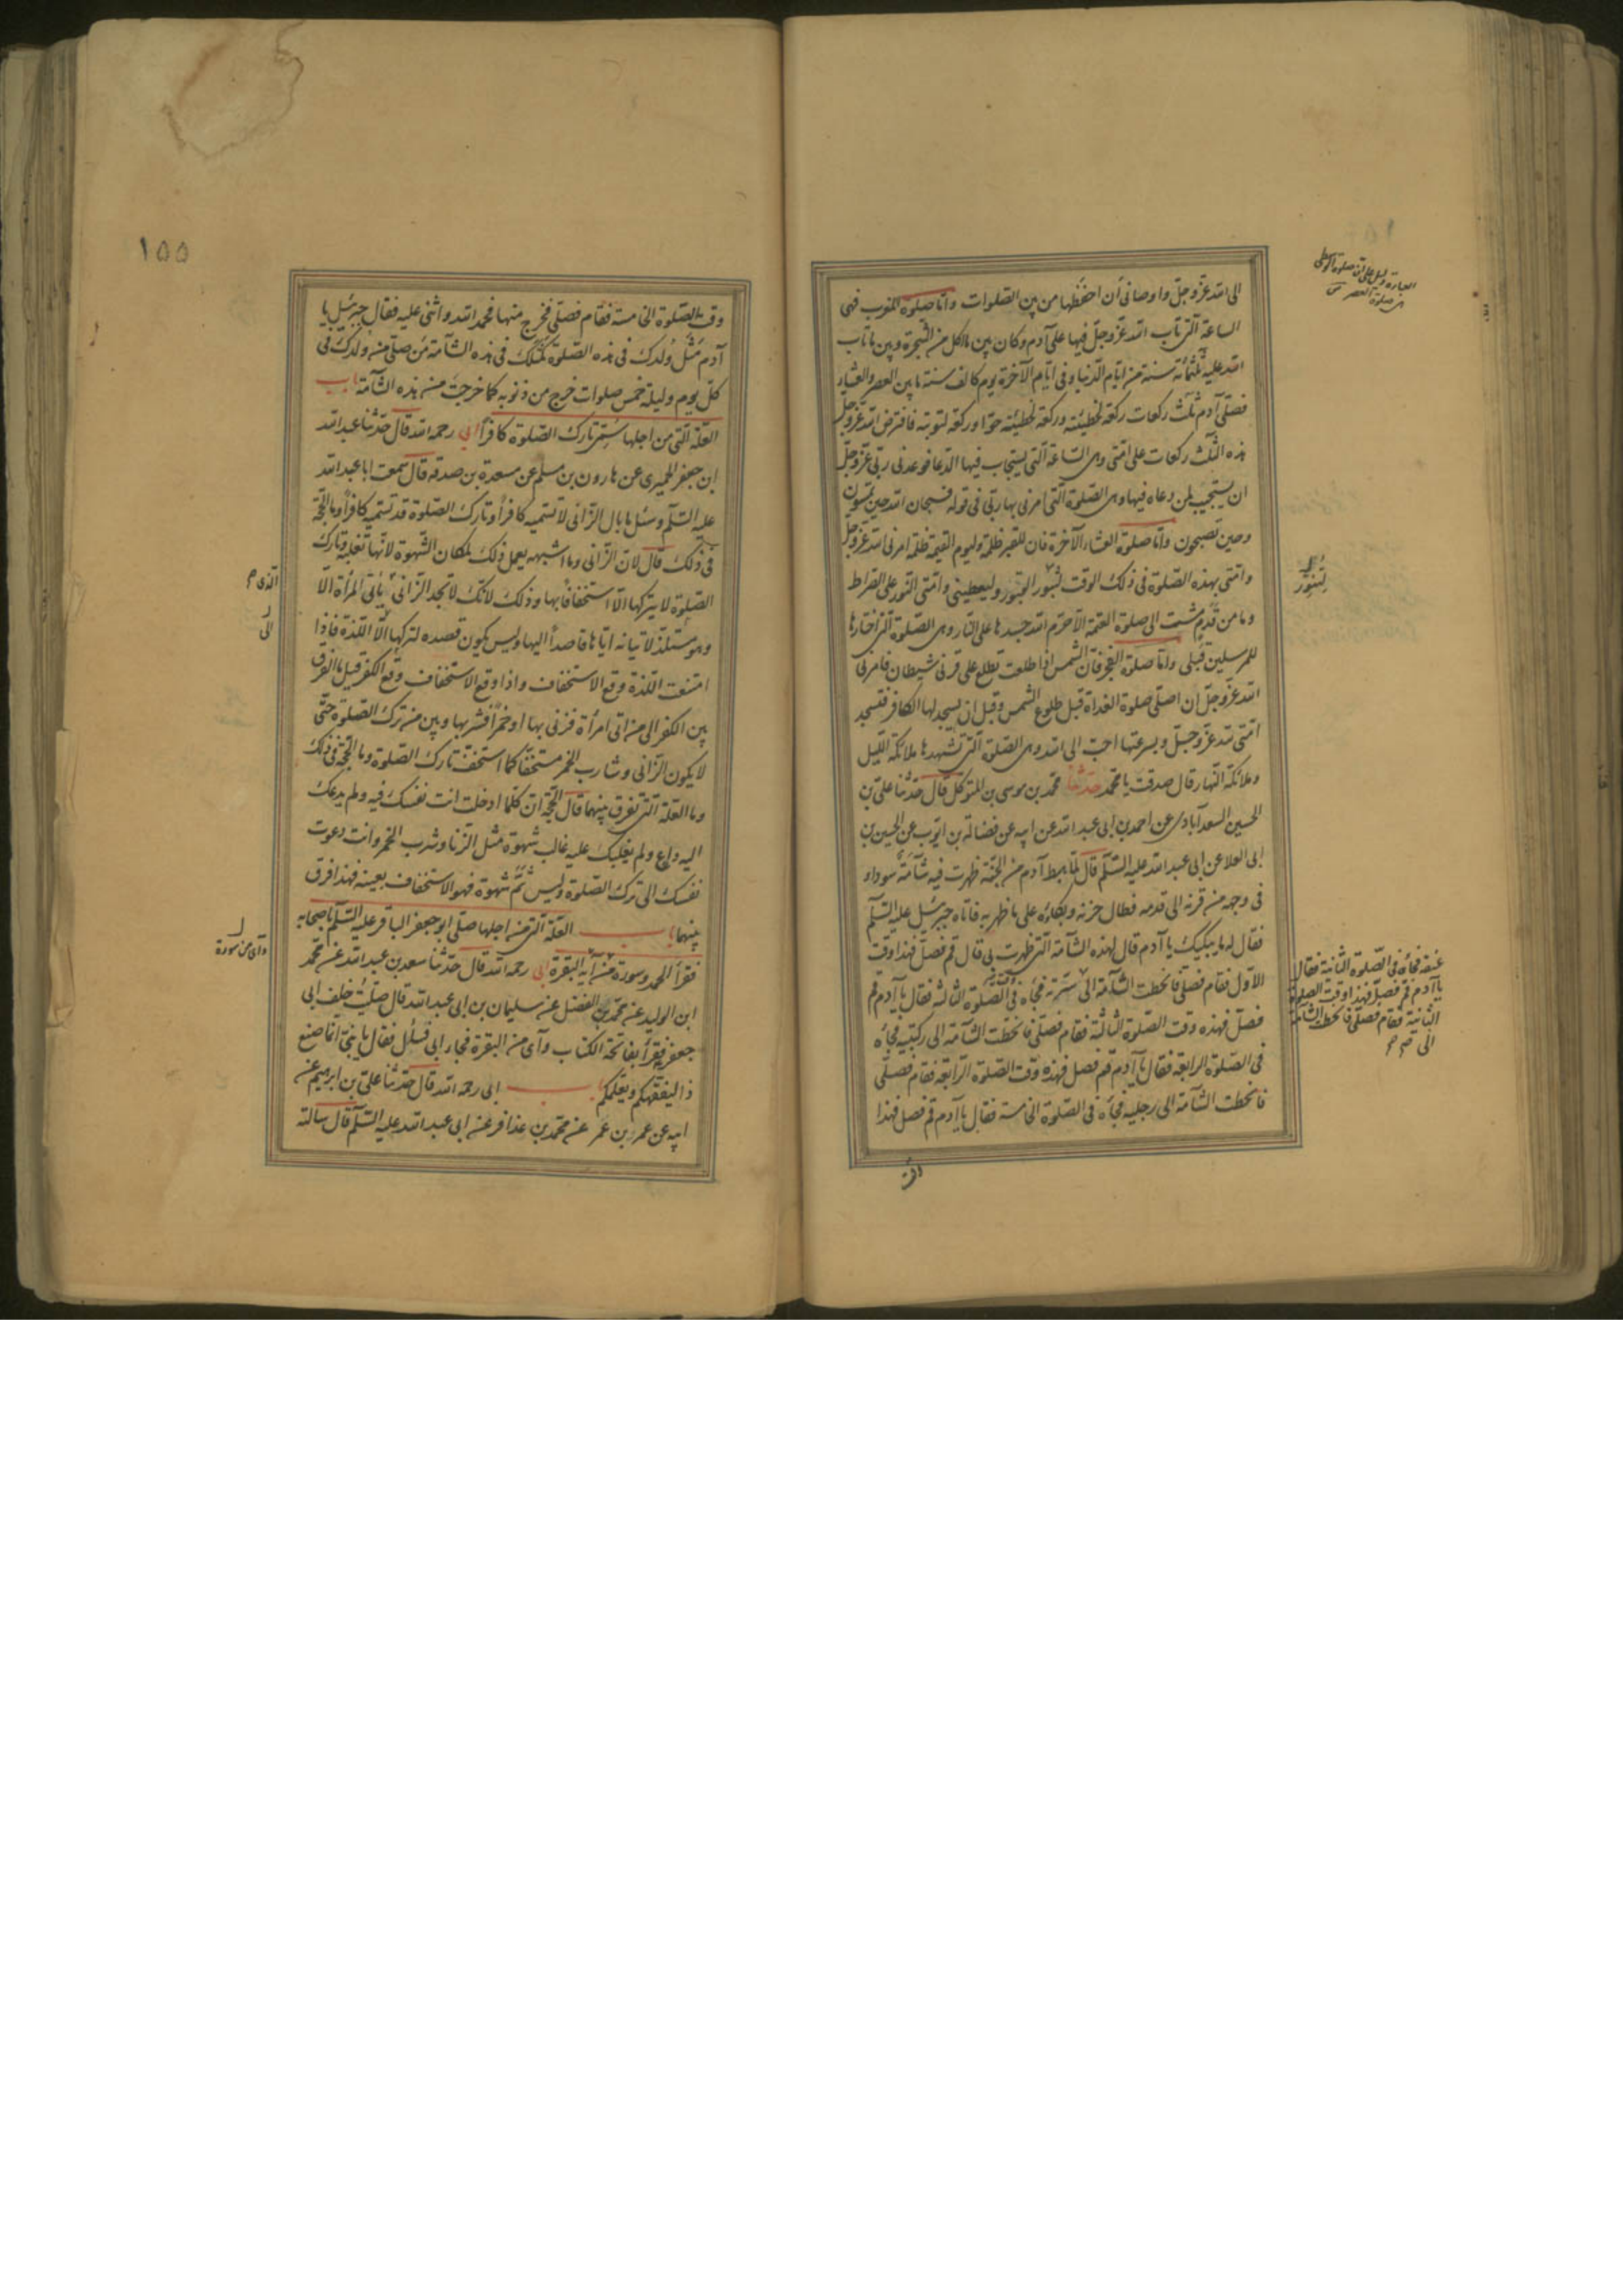 الى الله عز وجل واوصانى أن احفظها من بين الصلوات واما صلوة المغرب فهى
الساعة التى تاب الله عز وجل فيها على آدم وكان بين ما اكل من الشجرة وبين ما تاب
الله عليه ثلثمائة سنة من ايام الدنيا وفى ايام الآخرة يوم كالف سنة ما بين العصر والعشاء
فصلى آدم ثلث ركعات ركعة لخطيئته وركعة لخطيئة حوا وركعة لتوبته فافترض الله عز وجل
هذه الثلث ركعات على امتى وهى الساعة التى يستجاب فيها الدعا فوعدنى ربى عز وجل
ان يستجيب لمن دعاه فيها وهى الصلوة التى امرنى بها ربى فى قوله فسبحان الله حين تمسون
وحين تصبحون واما صلوة العشاء الآخرة فان للقبر ظلمة وليوم القيمة ظلمة امرنى الله عز وجل
وامتى بهذه الصلوة فى ذلك الوقت لتنور القبور وليعطينى وامتى النور على الصراط
وما من قدم مشت الى صلوة العتمة الا حرم الله جسدها على النار وهى الصلوة التى اختارها
للمرسلين قبلى واما صلوة الفجر فان الشمس اذا طلعت تطلع على قرنى شيطان فامرنى
الله عز وجل ان اصلى صلوة الغداة قبل طلوع الشمس وقبل ان يسجد لها الكافر فتسجد
امتى لله عز وجل وبسرعتها احب الى الله وهى الصلوة التى تشهدها ملائكة الليل
وملائكة النهار قال صدقت يا محمد حدثنا محمد بن موسى بن المتوكل قال حدثنا على بن
الحسين السعدآبادى عن احمد بن ابى عبد الله عن ابيه عن فضالة بن ايوب عن الحسين بن
ابى العلا عن ابى عبد الله عليه السلم قال لما هبط آدم من الجنة ظهرت فيه شامة سوداء
فى وجهه من قرنه الى قدمه فطال حزنه وبكاؤه على ما ظهر به فاتاه جبرئيل عليه السلم
فقال له ما يبكيك يا آدم قال لهذه الشامة التى ظهرت بى قال قم فصل فهذا وقت
الاول فقام فصلى فانحطت الشامة الى سترته فجاءه فى الصلوة الثالثة فقال يا آدم قم
فصل فهذه وقت الصلوة الثالثة فقام فصلى فانحطت الشامة الى ركبتيه فجاءه
فى الصلوة الرابعة فقال يا آدم قم فصل فهذه وقت الصلوة الرابعة فقام فصلى
فانحطت الشامة الى رجليه فجاءه فى الصلوة الخامسة فقال يا آدم قم فصل فهذا
وقت
صلوة العصر
لتنور
عنقه فجاءه فى الصلوة الثانية فقال
يا آدم قم فصل فهذا وقت الصلوة
الثانية فقام فصلى فانحطت الشامة
الى
١٥٥
وقت الصلوة الخامسة فقام فصلى فخرج منها فحمد الله واثنى عليه فقال جبرئيل يا
آدم مثل ولدك فى هذه الصلوة كمثلك فى هذه الشامة من صلى من ولدك فى
كل يوم وليلة خمس صلوات خرج من ذنوبه كما خرجت من هذه الشامة باب
العلة التى من اجلها سمى تارك الصلوة كافرا ابى رحمه الله قال حدثنا عبد الله
ابن جعفر الحميرى عن هارون بن مسلم عن مسعدة بن صدقة قال سمعت ابا عبد الله
عليه السلم وسئل ما بال الزانى لا تسميه كافرا وتارك الصلوة قد تسميه كافرا وما الحجة
فى ذلك قال لان الزانى وما اشبهه يعمل ذلك لمكان الشهوة لانها تغلبه وتارك
الصلوة لا يتركها الا استخفافا بها وذلك لانك لا تجد الزانى يأتى المرأة الا
وهو مستلذ لاتيانه اياها قاصدا اليها وليس يكون قصده لتركها اللذة فاذا
امتنعت اللذة وقع الاستخفاف واذا وقع الاستخفاف وقع الكفر قيل ما الفرق
بين الكفر الى من اتى امرأة فزنى بها او خمرا فشربها وبين من ترك الصلوة حتى
لا يكون الزانى وشارب الخمر مستخفا كما استخف تارك الصلوة وما الحجة فى ذلك
وما العلة التى تفرق بينهما قال الحجة ان كلما ادخلت انت نفسك فيه ولم يدعك
اليه داع ولم يغلبك عليه غالب شهوة مثل الزنا وشرب الخمر وانت دعوت
نفسك الى ترك الصلوة وليس ثم شهوة فهو الاستخفاف بعينه فهذا فرق
بينهما باب العلة التى من اجلها صلى ابو جعفر الباقر عليه السلم باصحابه
فقرأ الحمد وسورة من آية البقرة ابى رحمه الله قال حدثنا سعد بن عبد الله عن محمد
ابن الوليد عن محمد بن الفضل عن سليمان بن ابى عبد الله قال صليت خلف ابى
جعفر فقرأ بفاتحة الكتاب وآى من البقرة فجاء ابى فسأل فقال يا بنى انما صنع
ذا ليفقهكم ويعلمكم باب ابى رحمه الله قال حدثنا على بن ابرهيم عن
ابيه عن عمرو بن عمر عن محمد بن عذافر عن ابى عبد الله عليه السلم قال سالته
الذى
الى
وآى من سورة